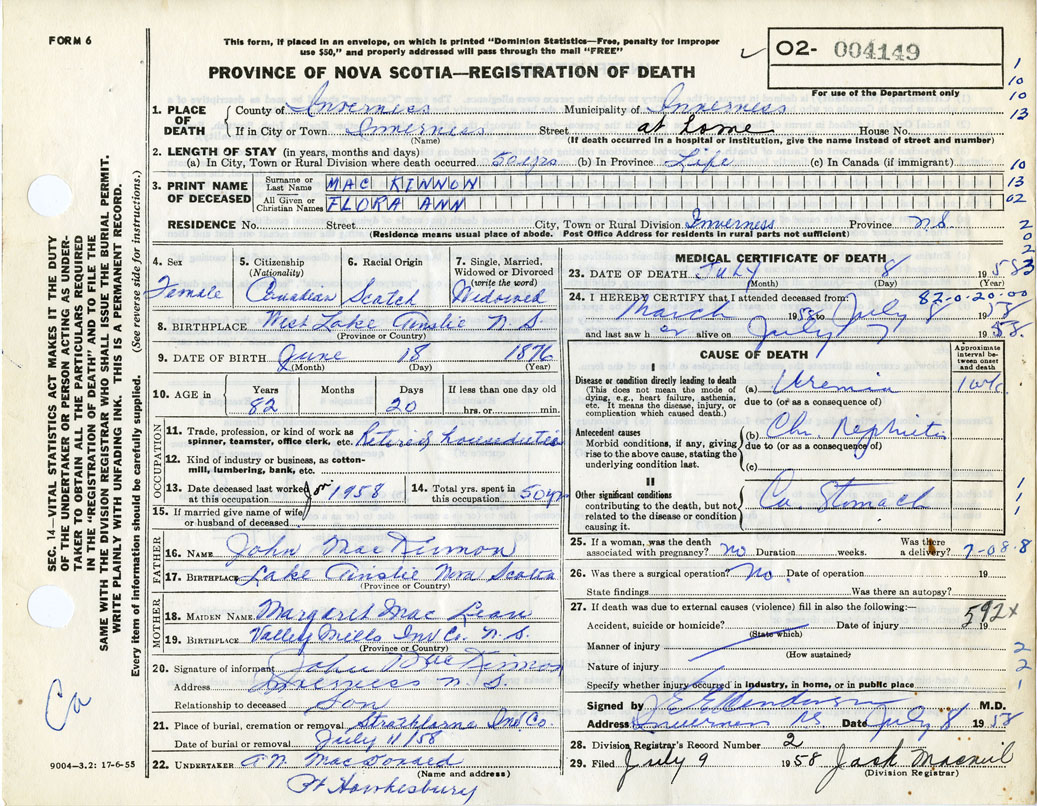 FORM 6
This form, if placed in an envelope, on which is printed "Dominion Statistics—Free, penalty for improper
use $50," and properly addressed will pass through the mail "FREE"
02- 004149
For use of the Department only
PROVINCE OF NOVA SCOTIA—REGISTRATION OF DEATH
1. PLACE OF DEATH
County of Inverness Municipality of Inverness
If in City or Town Inverness Street at home House No.
(Name) (If death occurred in a hospital or institution, give the name instead of street and number)
2. LENGTH OF STAY (in years, months and days)
(a) In City, Town or Rural Division where death occurred 50 yrs (b) In Province Life (c) In Canada (if immigrant)
3. PRINT NAME OF DECEASED
Surname or Last Name MAC KINNON
All Given or Christian Names FLORA ANN
RESIDENCE No. Street City, Town or Rural Division Inverness Province N.S.
(Residence means usual place of abode. Post Office Address for residents in rural parts not sufficient)
4. Sex Female
5. Citizenship (Nationality) Canadian
6. Racial Origin Scotch
7. Single, Married, Widowed or Divorced (write the word) Widowed
8. BIRTHPLACE West Lake Ainslie N.S.
(Province or Country)
9. DATE OF BIRTH June 18 1876
(Month) (Day) (Year)
10. AGE in Years 82 Months Days 20 If less than one day old hrs. or min.
OCCUPATION
11. Trade, profession, or kind of work as
spinner, teamster, office clerk, etc.
12. Kind of industry or business, as cotton-
mill, lumbering, bank, etc.
13. Date deceased last worked at this occupation 1958
14. Total yrs. spent in this occupation 50 yrs
15. If married give name of wife
or husband of deceased
FATHER
16. NAME John MacKinnon
17. BIRTHPLACE Lake Ainslie Nova Scotia
(Province or Country)
MOTHER
18. MAIDEN NAME Margaret Mac Lean
19. BIRTHPLACE Valley Mills Inv Co. N.S.
(Province or Country)
20. Signature of informant John MacKinnon
Address Inverness N.S.
Relationship to deceased Son
21. Place of burial, cremation or removal Strathlorne Inv Co.
Date of burial or removal July 11/58
22. UNDERTAKER MacDonald
(Name and address)
Pt Hawkesbury
9004—3.2: 17-6-55
MEDICAL CERTIFICATE OF DEATH
23. DATE OF DEATH July 8 1958
(Month) (Day) (Year)
82-0-20-00
24. I HEREBY CERTIFY that I attended deceased from:
March 1958 to July 8 1958
and last saw her alive on July 7 1958.
CAUSE OF DEATH
Approximate interval between onset and death
I
Disease or condition directly leading to death (a) Uremia 1 wk
(This does not mean the mode of
dying, e.g., heart failure, asthenia,
etc. It means the disease, injury, or
complication which caused death.)
due to (or as a consequence of)
Antecedent causes (b) Ch. Nephritis
Morbid conditions, if any, giving
rise to the above cause, stating the
underlying condition last.
due to (or as a consequence of)
(c)
II
Other significant conditions Ca. Stomach
contributing to the death, but not
related to the disease or condition
causing it.
25. If a woman, was the death
associated with pregnancy? no Duration weeks. Was there a delivery? 7-08-8
26. Was there a surgical operation? No. Date of operation 19
State findings Was there an autopsy?
27. If death was due to external causes (violence) fill in also the following:—
592x
Accident, suicide or homicide? Date of injury 19
(State which)
Manner of injury
(How sustained)
Nature of injury
Specify whether injury occurred in industry, in home, or in public place
Signed by M.D.
Address Inverness NS Date July 8 1958
28. Division Registrar's Record Number 2
29. Filed July 9 1958 Jack Macneil
(Division Registrar)
SEC. 14—VITAL STATISTICS ACT MAKES IT THE DUTY
OF THE UNDERTAKER OR PERSON ACTING AS UNDER-
TAKER TO OBTAIN ALL THE PARTICULARS REQUIRED
IN THE "REGISTRATION OF DEATH" AND TO FILE THE
SAME WITH THE DIVISION REGISTRAR WHO SHALL ISSUE THE BURIAL PERMIT.
WRITE PLAINLY WITH UNFADING INK. THIS IS A PERMANENT RECORD.
Every item of information should be carefully supplied. (See reverse side for instructions.)
Ca
1
10
10
13
10
13
02
2
0
2
3
1
1
1
2
2
1